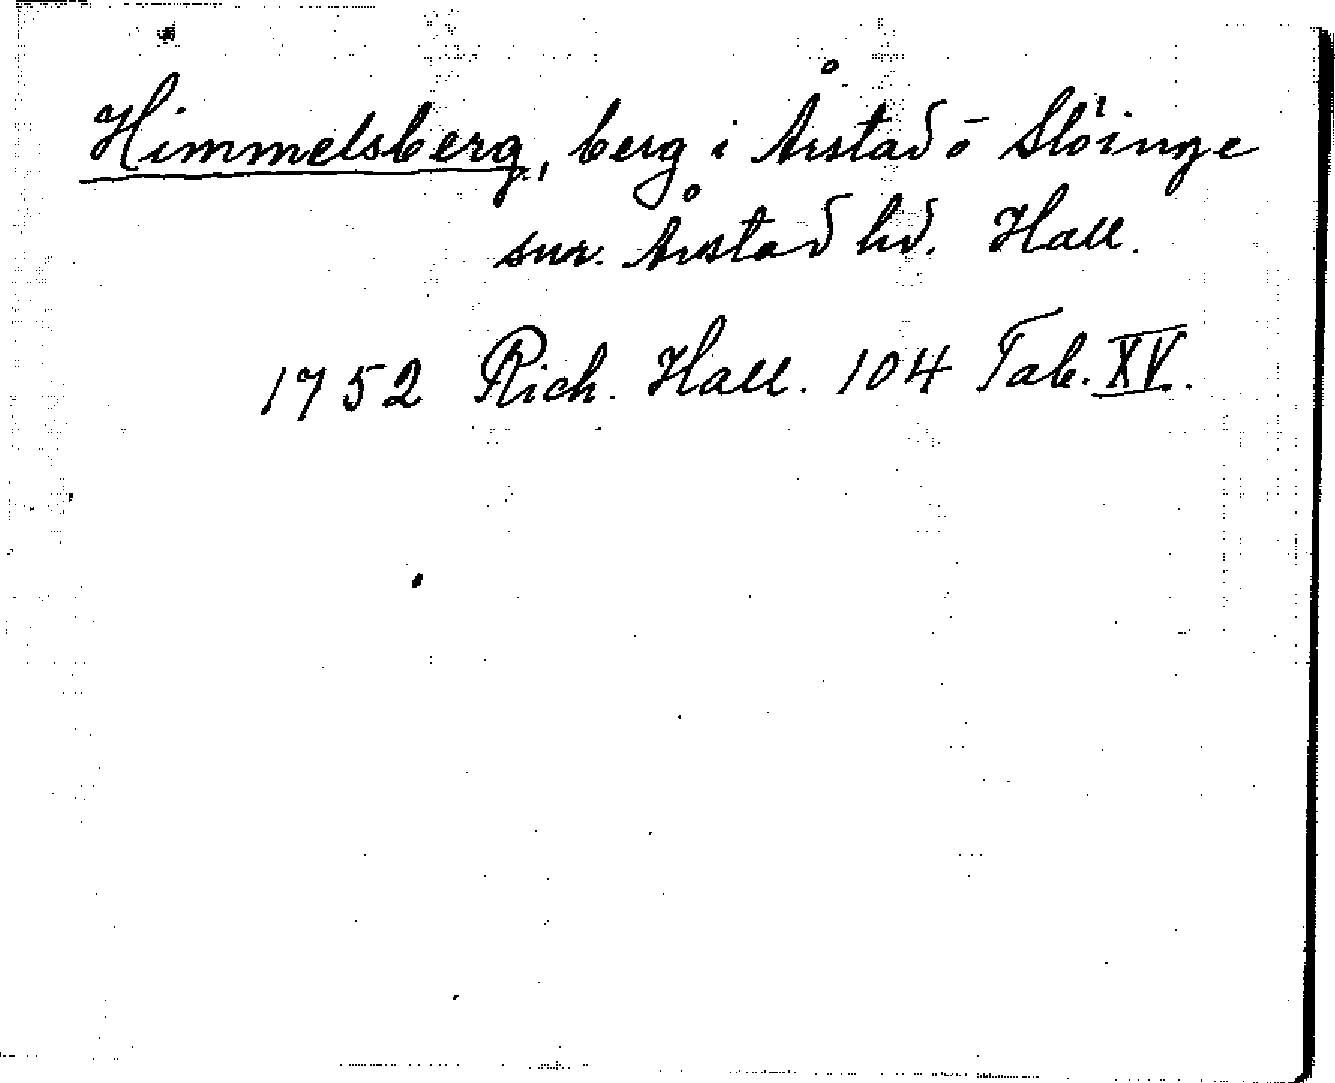 Himmelsberg, berg i Årstad o Slöinge
snr. Årstad hd. Hall.
1752 Rich. Hall. 104 Tab. XV.